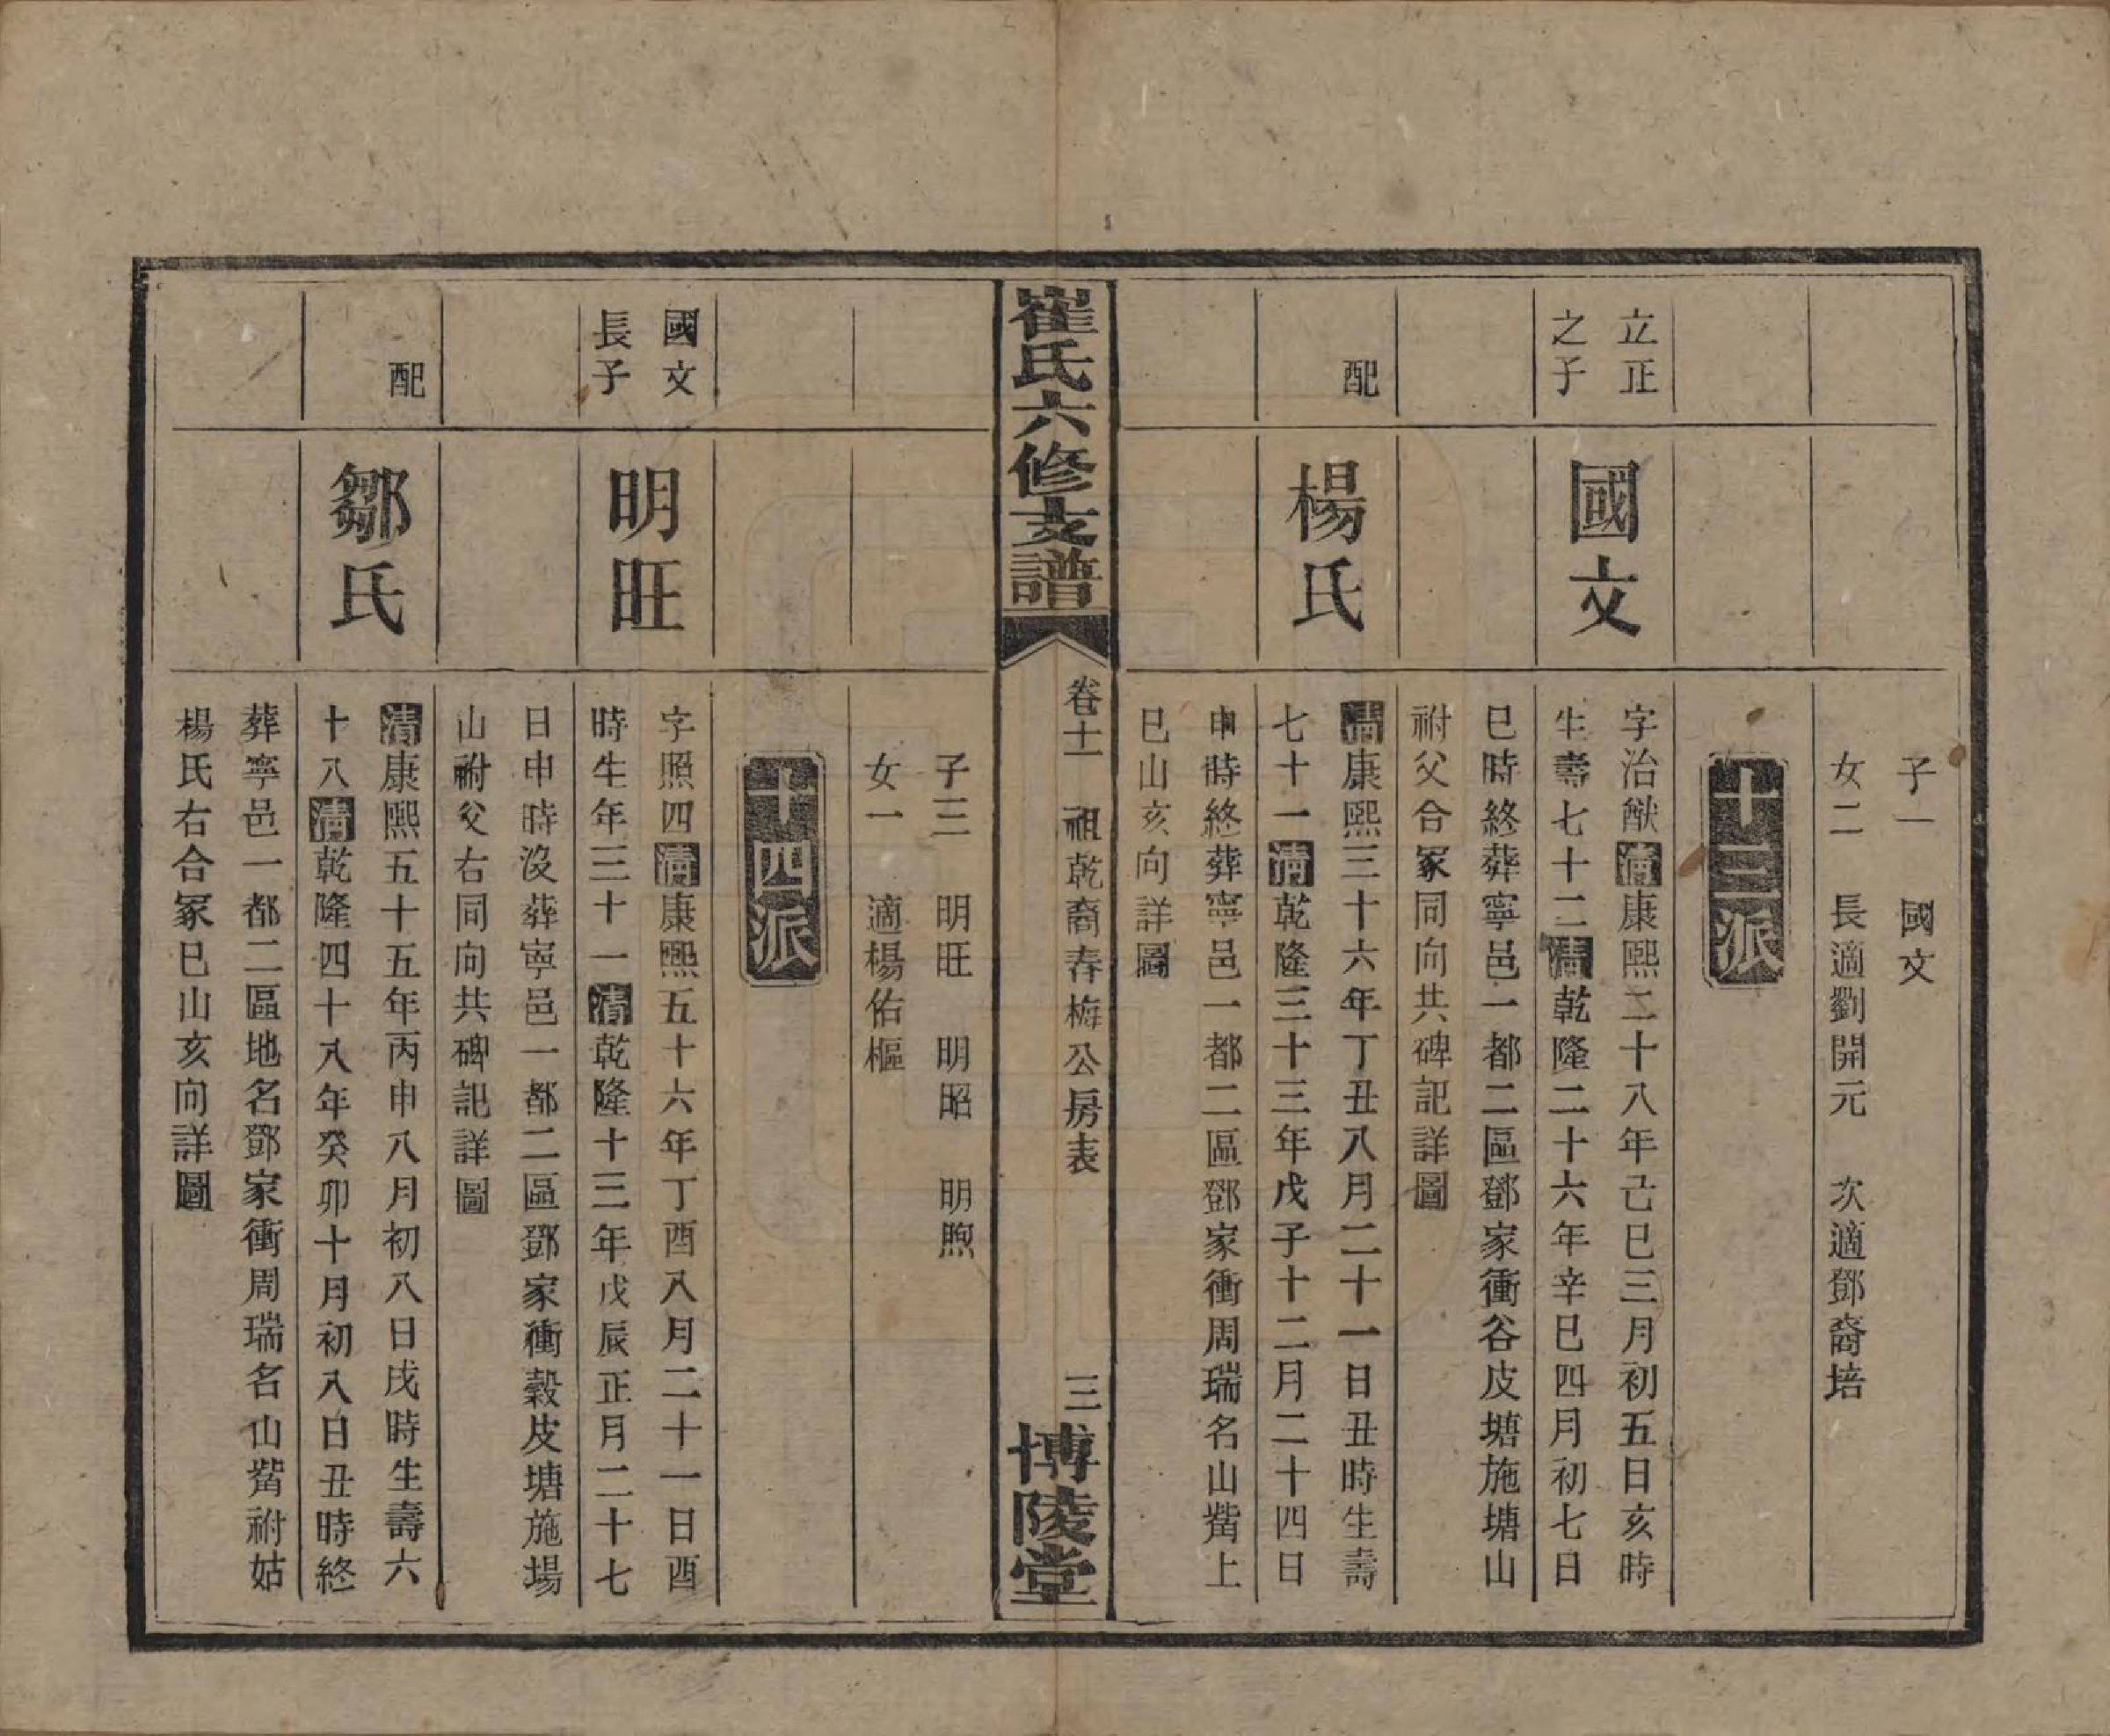 子一　國文
女二　長適劉開元　次適鄧裔培
十三派
立正
之子
國文
字治猷清康熙二十八年己巳三月初五日亥時
生壽七十二清乾隆二十六年辛巳四月初七日
巳時終葬寧邑一都二區鄧家衝谷皮塘施塘山
祔父合冢同向共碑記詳圖
配
楊氏
清康熙三十六年丁丑八月二十一日丑時生壽
七十一清乾隆三十三年戊子十二月二十四日
申時終葬寧邑一都二區鄧家衝周瑞名山觜上
巳山亥向詳圖
崔氏六修支譜
卷十一　祖乾裔春梅公房表
三
博陵堂
子三　明旺　明昭　明煦
女一　適楊佑樞
十四派
國文
長子
明旺
字照四清康熙五十六年丁酉八月二十一日酉
時生年三十一清乾隆十三年戊辰正月二十七
日申時沒葬寧邑一都二區鄧家衝穀皮塘施場
山祔父右同向共碑記詳圖
配
鄒氏
清康熙五十五年丙申八月初八日戌時生壽六
十八清乾隆四十八年癸卯十月初八日丑時終
葬寧邑一都二區地名鄧家衝周瑞名山觜祔姑
楊氏右合冢巳山亥向詳圖